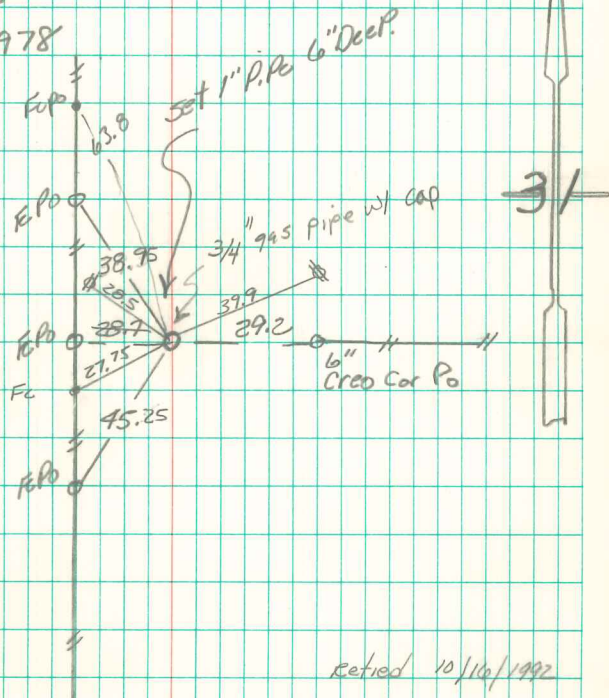 978
Set 1" P.Po 6" Deep.
FcPo
63.8
FcPo
31
3/4" gas pipe w/ cap
38.95
20.5
39.9
FcPo
28.7
29.2
27.75
6"
Creo Cor Po
Fc
45.25
FcPo
Retied 10/16/1992